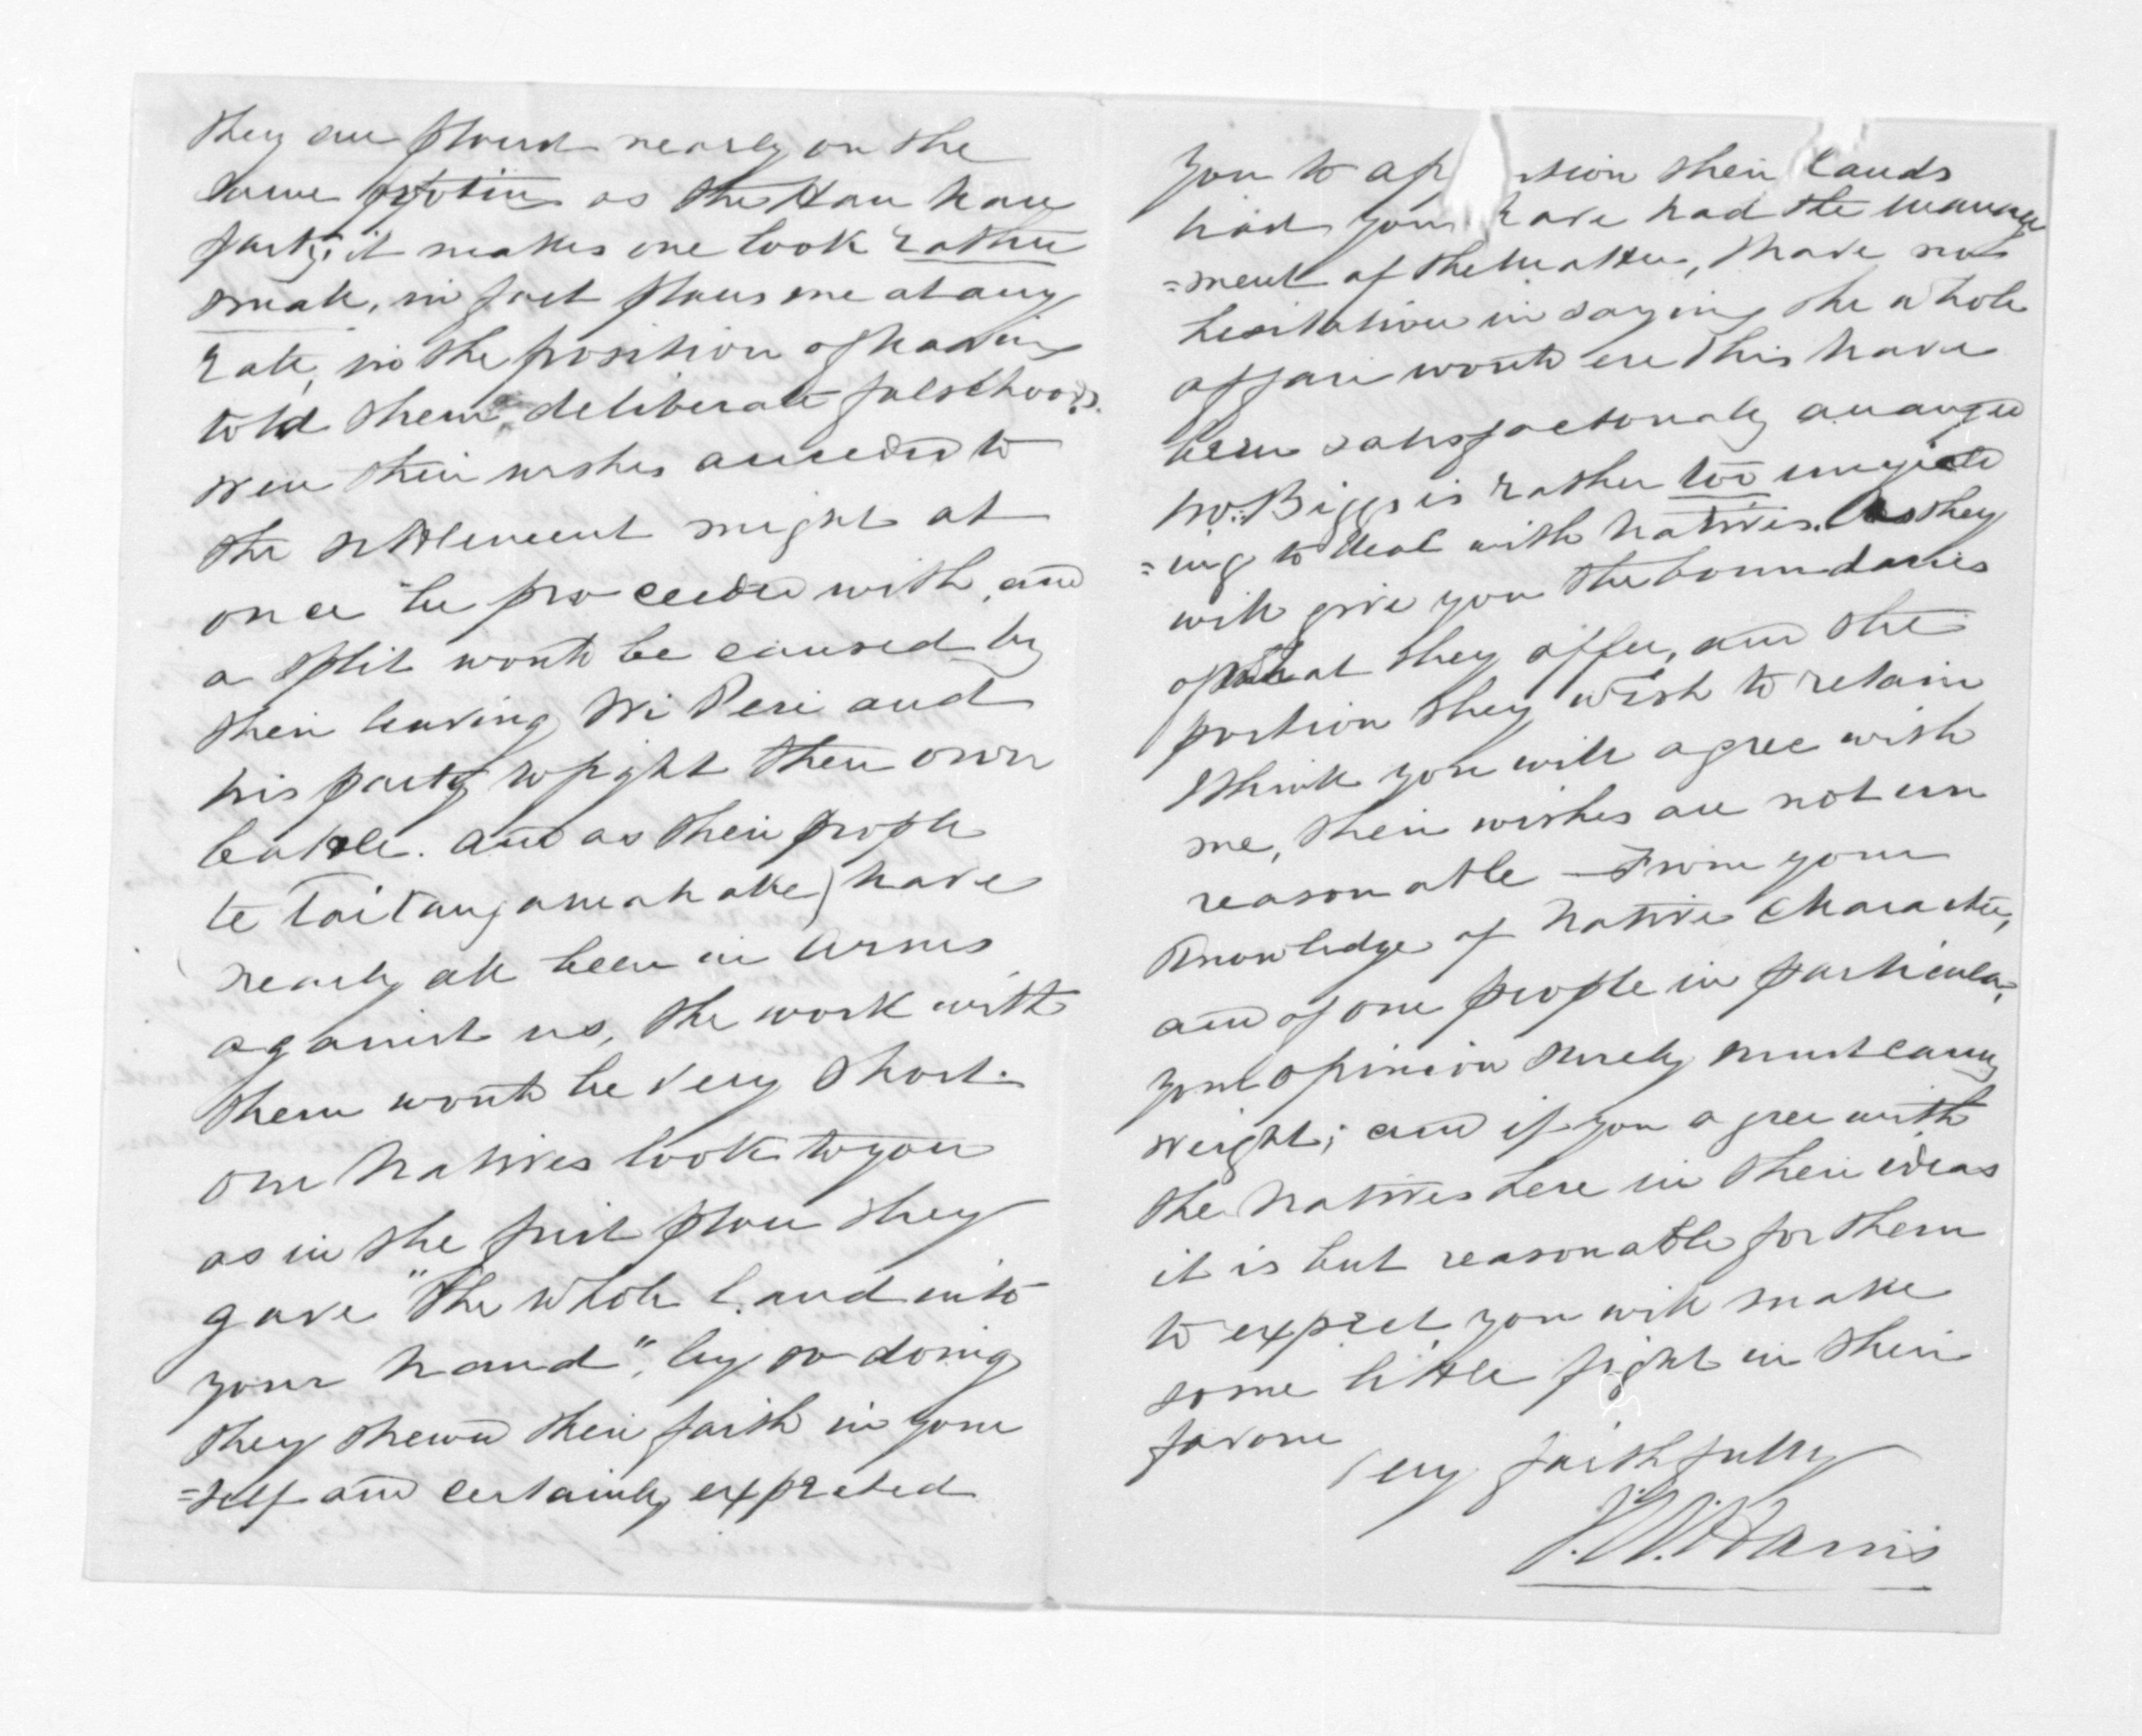 they are placed nearly on the
same footing as the Hau hau
party; it makes one look rather
small, in fact places me at any
rate, in the position of having
told them deliberate falsehoods.
Were their wishes acceded to
the settlement might at
once be proceeded with, and
a split would be caused by
their leaving Wi Peri and
his party to fight their own
battle. and as their people
te Taitangamahake) have
nearly all been in arms
against us, the work with
them would be very short.
Our Natives look to you
as in the first place they
gave "the whole land into
your hand", by so doing
they shewed their faith in your
=self and certainly expected
you to ap rtion their lands
had you have had the manage
=ment of the matter, I have no
hesitation in saying the whole
affair would ere this have
been satisfactorily arranged
Mr. Biggs is rather too unyield
=ing to deal with natives. As they
will give you the boundaries
of what they offer, and the
portion they wish to retain
I think you will agree with
me, their wishes are not un
reasonable — From your
Knowledge of Native Character,
and of our people in particular,
your opinion surely must carry
weight; and if you agree with
the natives here in their ideas
it is but reasonable for them
to expect you will make
some little fight in their
favour
Very faithfully
J.W. Harris